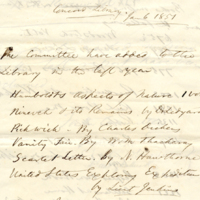 Concord
Jan 6 1851
The Committee have added to the
Library in the last year
Humboldts Aspects of Nature 1 vo
Nineveh & its Remains by
Pickwick. By Charles Dickens
Vanity Fair. By Wm Thackeray
Scarlet Letter. by N. Hawthorne
United States Exploring Expedition
by Lieut Jenkins